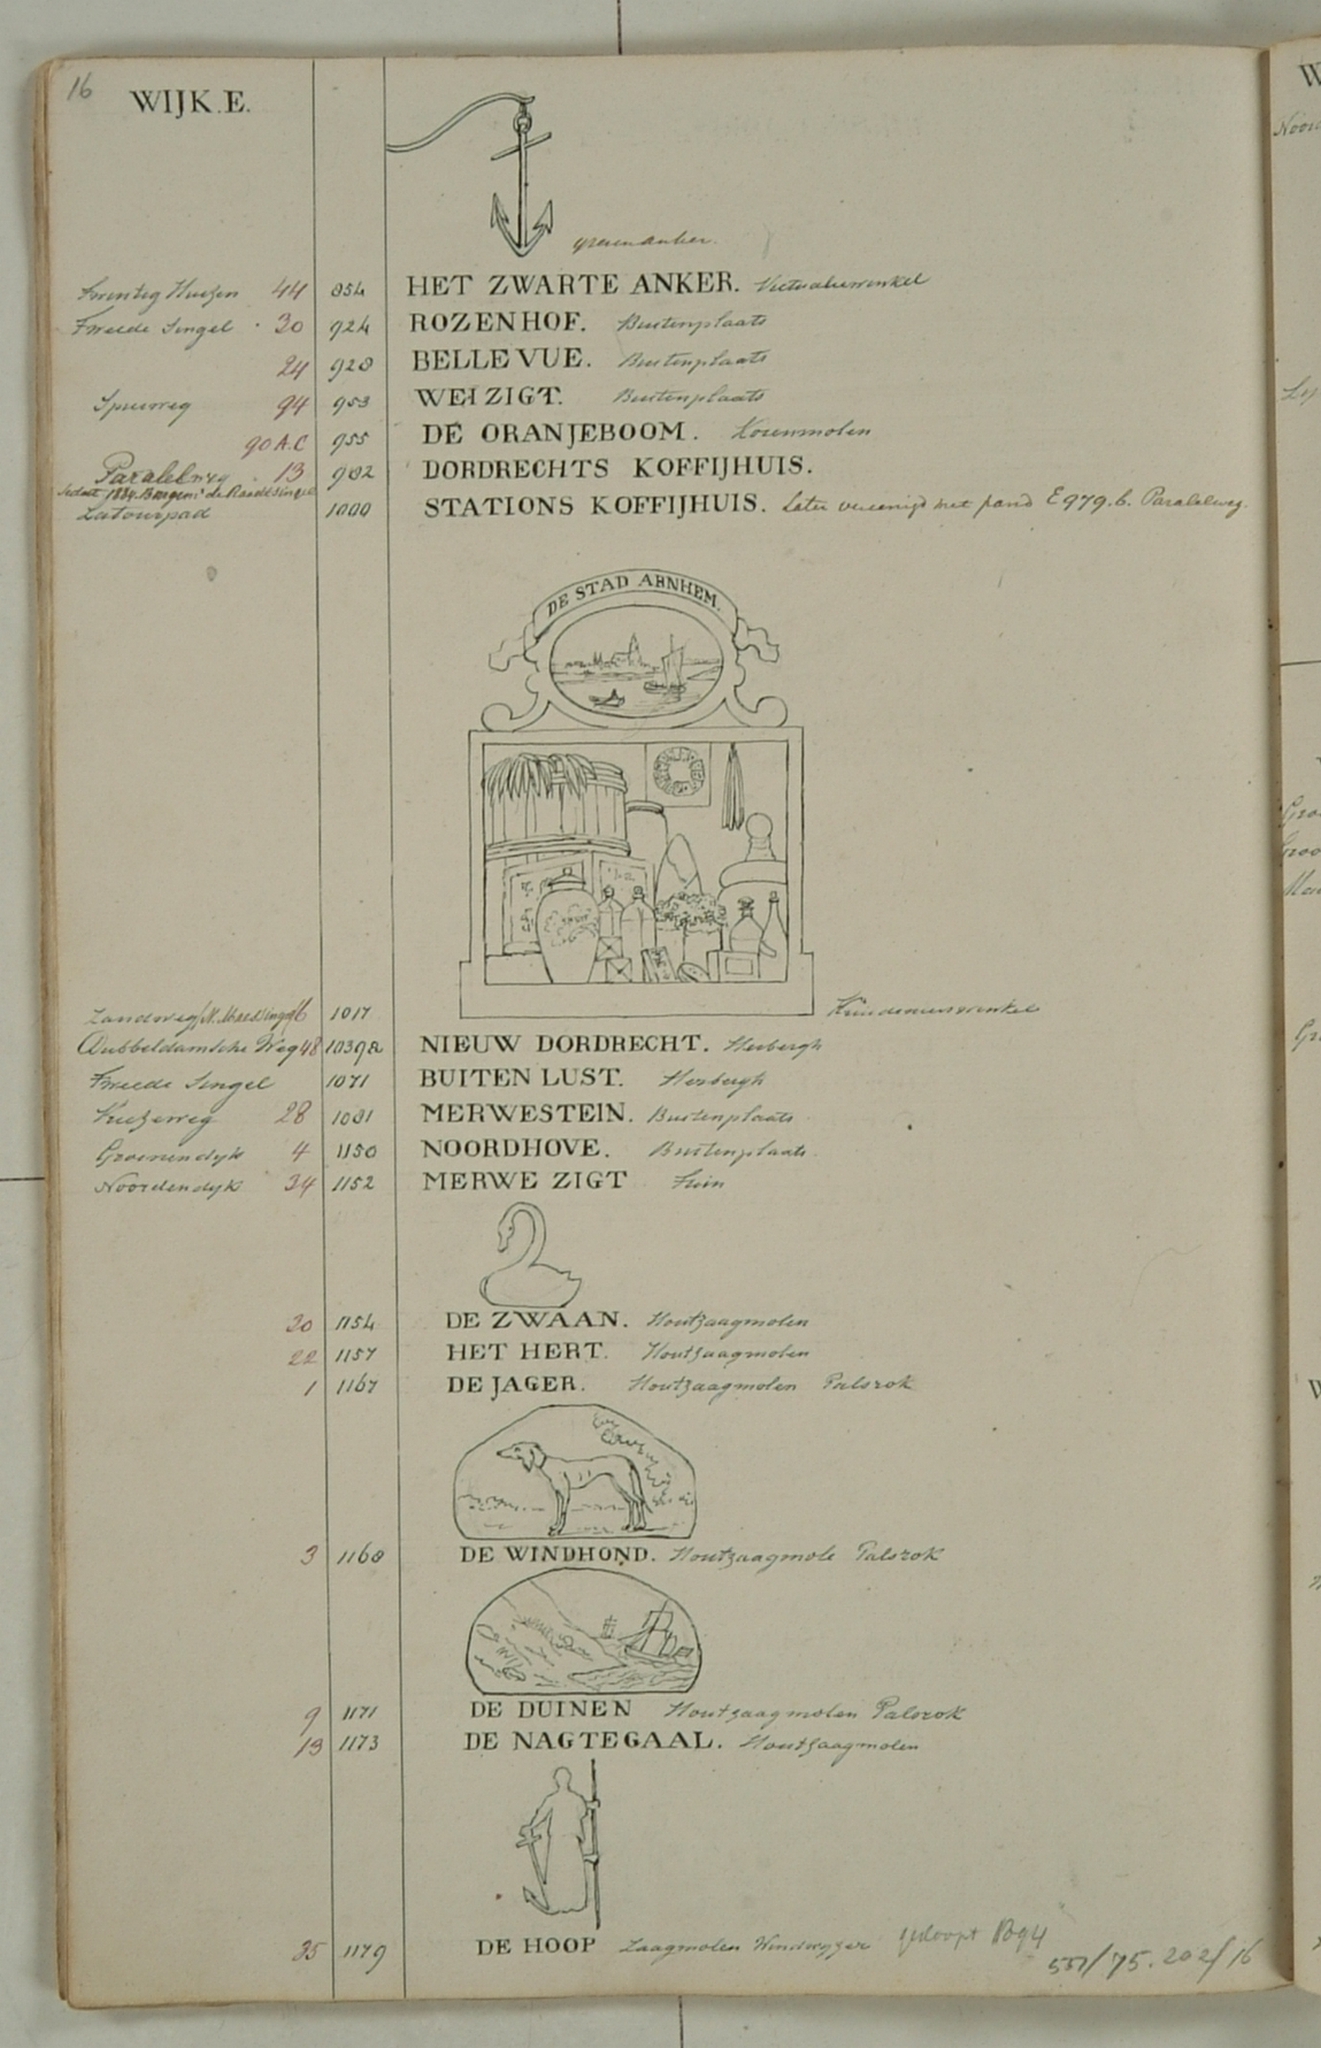 16
WIJK.E.
ijzeren anker.
Twintig Huizen 44 854 HET ZWARTE ANKER. Victualiewinkel
Tweede Singel 30 924 ROZENHOF. Buitenplaats
24 928 BELLE VUE. Buitenplaats
Spuiweg 94 953 WEIZIGT. Buitenplaats
90 A.C 955 DE ORANJEBOOM. Korenmolen
Paralelweg 13 982 DORDRECHTS KOFFIJHUIS.
sedert 1884 Burgemr de Raadtsingel
Latourpad 1000 STATIONS KOFFIJHUIS. Later vereenigd met pand E 979.b. Paralelweg.
DE STAD ARNHEM.
Landweg 1017 Kruidenierswinkel
Dubbeldamsche Weg 48 1039a NIEUW DORDRECHT. Herbergh
Tweede Singel 1071 BUITEN LUST. Herbergh
28 1081 MERWESTEIN. Buitenplaats
Groenendyk 4 1150 NOORDHOVE. Buitenplaats
Noordendyk 34 1152 MERWE ZIGT Tuin
20 1154 DE ZWAAN. Houtzaagmolen
22 1157 HET HERT. Houtzaagmolen
1 1167 DE JAGER. Houtzaagmolen Palsrok
3 1168 DE WINDHOND. Houtzaagmole Palsrok
9 1171 DE DUINEN Houtzaagmolen Palsrok
13 1173 DE NAGTEGAAL. Houtzaagmolen
35 1179 DE HOOP Zaagmolen Windwyzer gesloopt
551/75.202/16